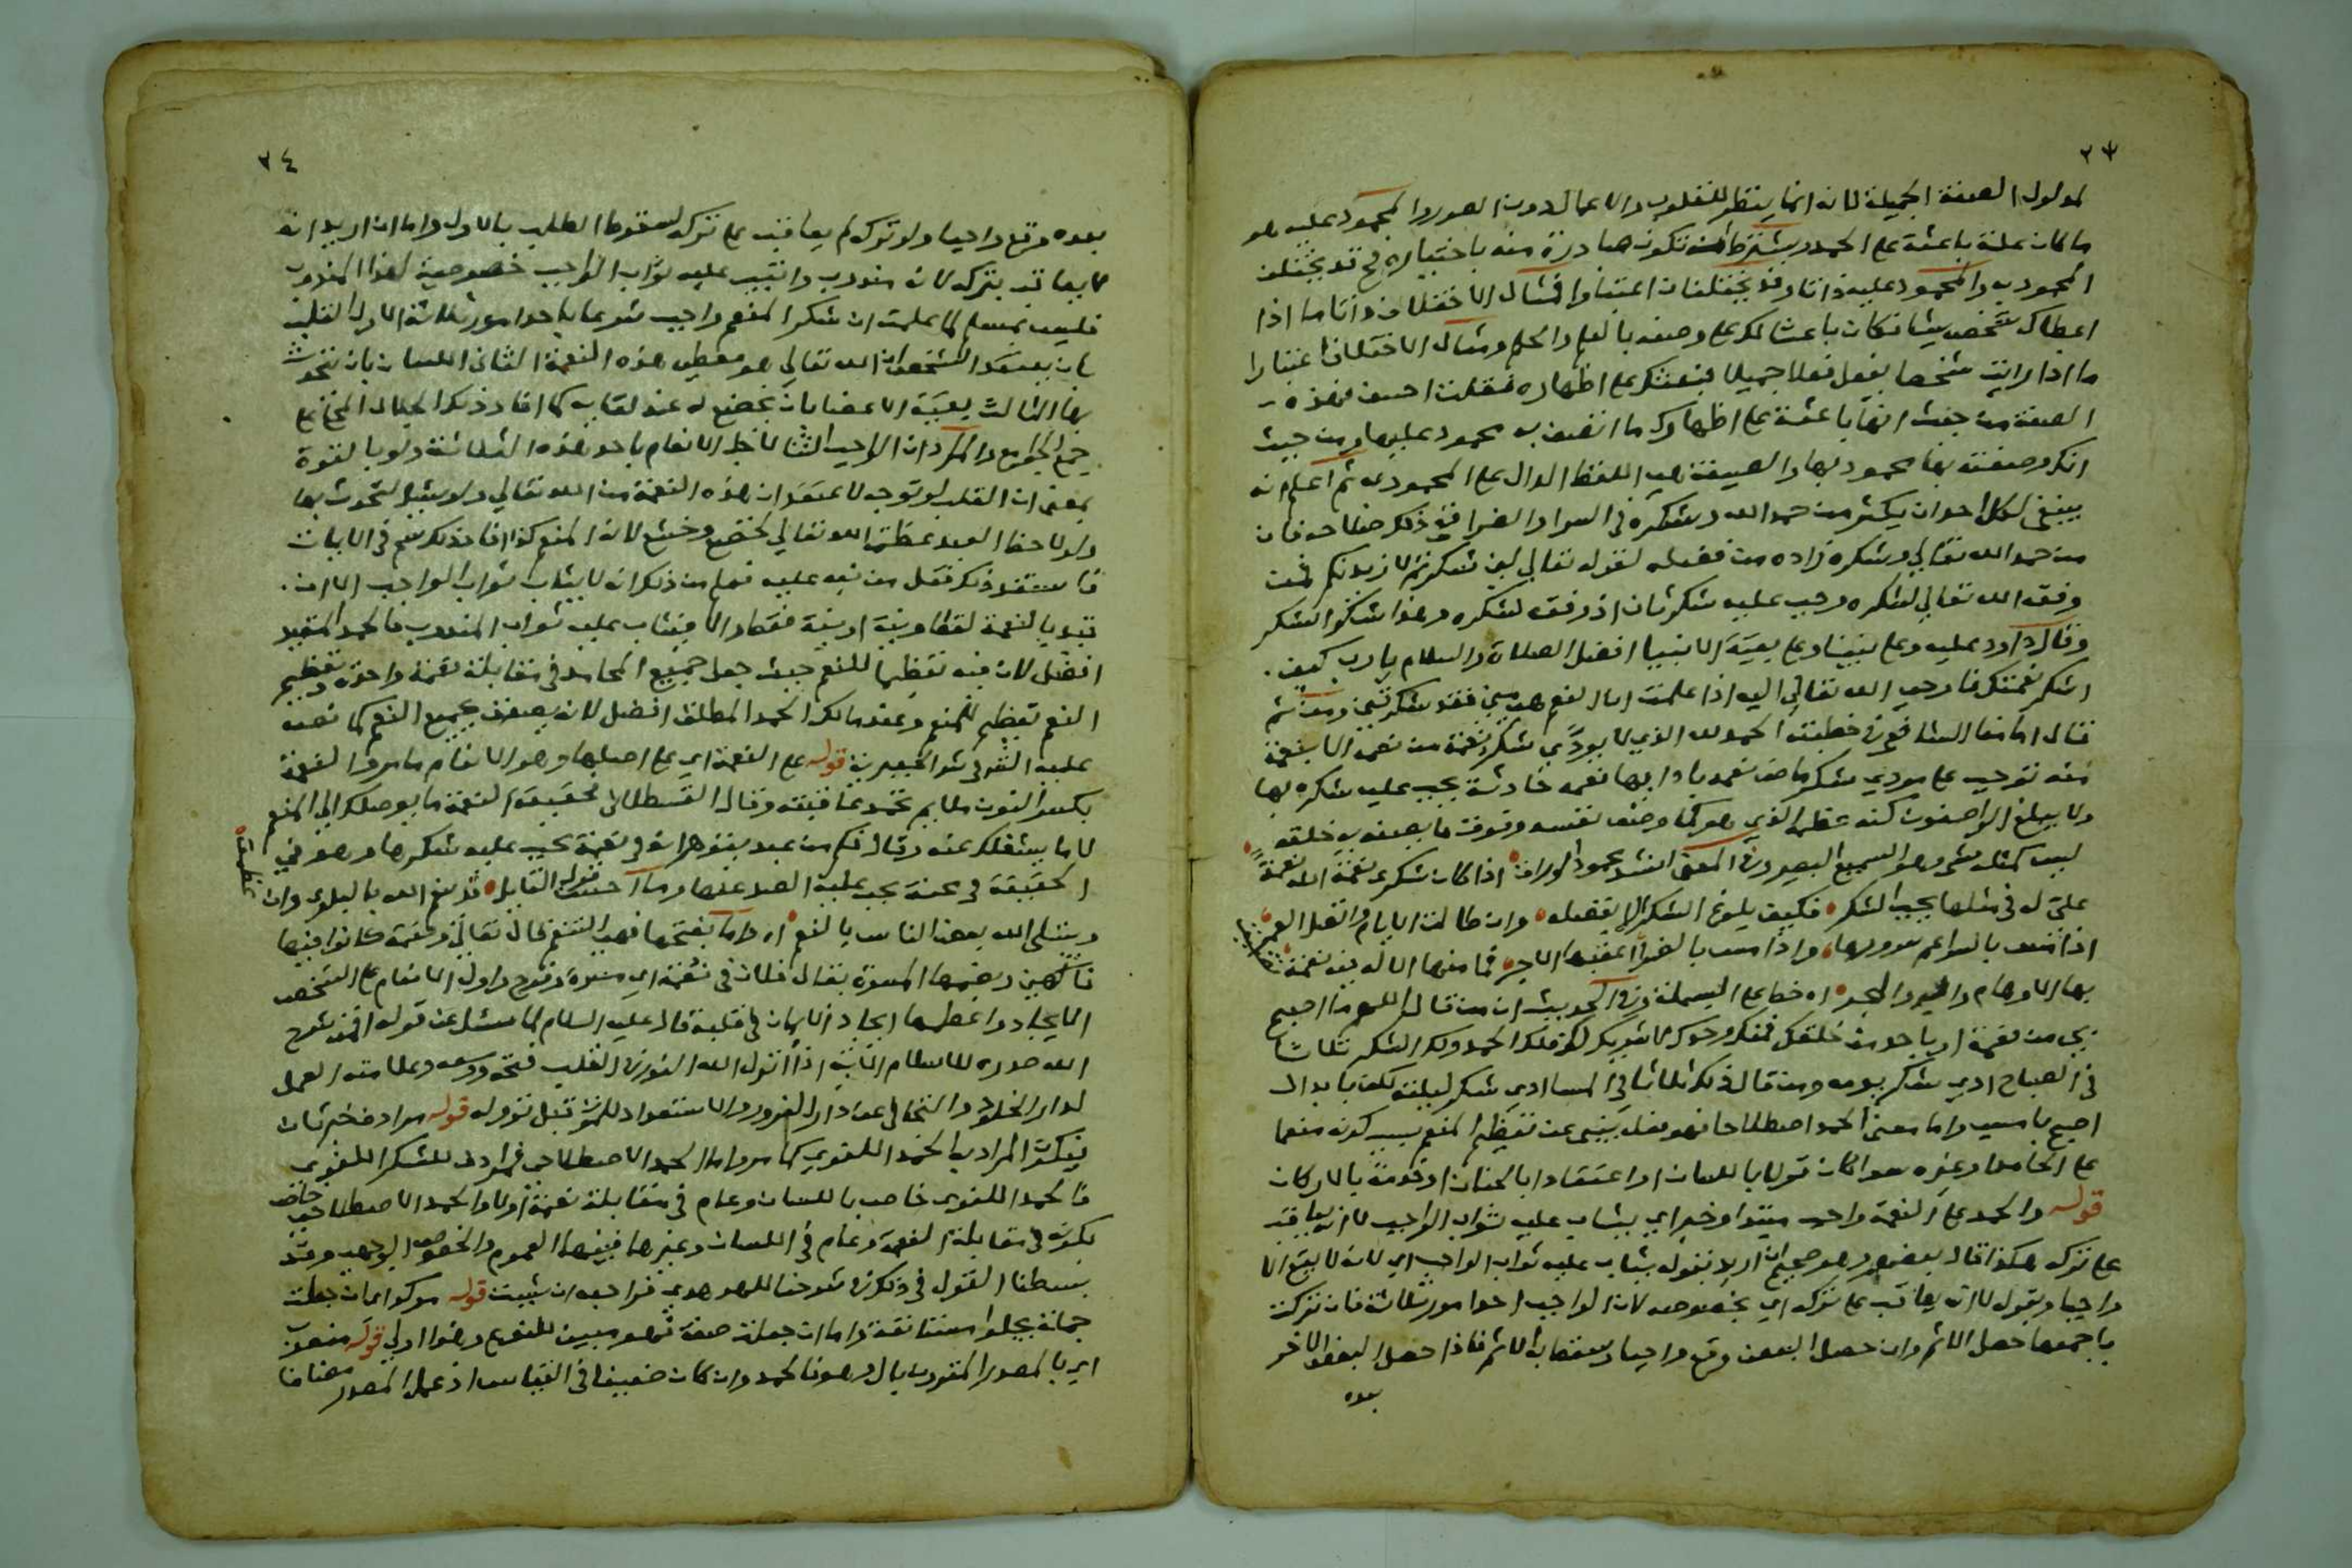 ٢٣
لمدلول الصفة الجميلة لانه انما ينظر للقلوب والاعمال دون الصور والمحمود عليه هو
ما كان علة باعثة على الحمد ويشترط ان تكون صادرة منه باختياره ثم قد يختلف
المحمود به والمحمود عليه ذاتا وقد يختلفان اعتبارا فمثال الاختلاف ذاتا ما اذا
اعطاك شخص شيئا فكان باعثا لك على وصفه بالعلم والحلم ومثال الاختلاف اعتبارا
ما اذا رايت شخصا يفعل فعلا جميلا فبعثك على اظهاره فقلت احسن فهذه
الصفة من حيث انها باعثة على اظهارك ما اتصف به محمود عليها ومن حيث
انك وصفته بها محمود بها والصيغة هي اللفظ الدال على المحمود به ثم اعلم انه
ينبغي لكل احد ان يكثر من حمد الله وشكره في السرا والضرا في ذلك فان
من حمد الله تعالى وشكره زاده من فضله لقوله تعالى لين شكرتم لازيدنكم فمن
وفقه الله تعالى لشكره وجب عليه شكر ثان اذ وفقه لشكره وهذا شكر الشكر
وقال داود عليه وعلى نبينا وعلى بقية الانبيا افضل الصلاة والسلام يا رب كيف
اشكر نعمتك فاوحى الله تعالى اليه اذا علمت ان النعم مني فقد شكرتني ومن ثم
قال امامنا الشافعي في خطبته الحمد لله الذي لا يودى شكر نعمة من نعمه الا بنعمة
منه توجب على مودي شكر ماضي نعمه بادايها نعمه حادثة يجب عليه شكره بها
ولا يبلغ الواصفون كنه عظمته الذي هو كما وصف نفسه وفوق ما يصفه به خلقه
ليس كمثله شي وهو السميع البصير وفي المعنى انشد محمود الوراق اذا كان شكري نعمة الله نعمة
علي له في مثلها يجب الشكر فكيف بلوغ الشكر الا بفضله وان طالت الايام واتصل العمر
اذا مس بالسرا عم سرورها واذا مس بالضرا اعقبها الاجر فما منهما الا له فيه نعمة
بها الاوهام والبر والبحر اه خط على البسملة وفي الحديث ان من قال اللهم ما اصبح
بي من نعمة او باحد من خلقك فمنك وحدك لا شريك لك فلك الحمد ولك الشكر ثلاثا
في الصباح ادى شكر يومه ومن قال ذلك ثلاثا في المسا ادى شكر ليلته لكن بابدال
اصبح بامسى واما معنى الحمد اصطلاحا فهو فعل ينبئ عن تعظيم المنعم بسبب كونه منعما
على الحامد او غيره سوا كان قولا باللسان او اعتقادا بالجنان او خدمة بالاركان
قوله والحمد على النعمة واجب مبتدا وخبر اي يثاب عليه ثواب الواجب لا انه يعاقب
على تركه هكذا قال بعضهم وهو صحيح ان اريد بقوله يثاب عليه ثواب الواجب اي لانه لا يقع الا
واجبا وبقوله لا انه يعاقب على تركه اي بخصوصه لان الواجب احد امور ثلاثة فان تركت
باجمعها حصل الاثم وان حصل البعض وقع واجبا وسقط به الاثم فاذا حصل البعض الاخر
بعده
٢٤
بعده وقع واجبا ولو ترك لم يعاقب على تركه لسقوط الطلب بالاول واما ان اريد انه
لا يعاقب بتركه لانه مندوب وانتيب عليه ثواب الواجب خصوصية لهذا المندوب
فليس بمسلم لما علمت ان شكر المنعم واجب شرعا باحد امور ثلاثة الاول القلب
بان يعتقد الشخص ان الله تعالى هو معطي هذه النعمة الثاني اللسان بان يتحدث
بها الثالث بقية الاعضا بان يخضع له عند لقايه كما افاد ذلك الجلال المحلي على
جمع الجوامع والمراد ان الواجب الشكر لاجل الانعام باحد هذه الثلاثة ولو بالقوة
بمعنى ان القلب لو توجه لاعتقد ان هذه النعمة من الله تعالى ولو سئل لتحدث بها
ولو لاحظ العبد عظمة الله تعالى لخضع وخشع لانه المنعم كذا افاد ذلك بعضهم في الاثبات
فاستفد ذلك فقل من نبه عليه فعلم من ذلك انه لا يثاب ثواب الواجب الا ان
قيد بالنعمة لفظا ونية او نية فقط والا فيثاب عليه ثواب المندوب فالحمد المقيد
افضل لان فيه تعظيما للمنعم حيث جعل جميع المحامد في مقابلة نعمة واحدة وتعظيم
النعم تعظيم للمنعم وعند مالك الحمد المطلق افضل لانه يصدق بجميع النعم كما نص
عليه القر في شرح الجعبرية قوله على النعمة اي على اصلها وهو الانعام ما مر والنعمة
بكسر النون ملايم تحمد عاقبته وقال القسطلاني حقيقة النعمة ما يوصلك الى المنعم
لا ما يشغلك عنه وقال فكم من عبد يتوهم انه في نعمة يجب عليه شكرها وهو في
الحقيقة في محنة يجب عليه الصبر عنها وما احسن قول القايل قد ينعم الله بالبلوى وان عظمت
ويبتلي الله بعض الناس بالنعم اه واما بفتحها فهي التنعم قال تعالى ونعمة كانوا فيها
فاكهين وبضمها المسرة يقال فلان في نعمة اي مسرة وفرح واول الانعام على الشخص
الايجاد واعظمها ايجاد الايمان في قلبه قال عليه السلام لما سئل عن قوله افمن شرح
الله صدره للاسلام الاية اذا انزل الله النور في القلب فتحه ووسعه وعلامته العمل
لدار الخلود والتجافي عن دار الغرور والاستعداد للموت قبل نزوله قوله مرادف خبر ثان
فيكون المراد به الحمد اللغوي كما مر واما الحمد الاصطلاحي فمرادف للشكر اللغوي
فالحمد اللغوي خاص باللسان وعام في مقابلة نعمة او لا والحمد الاصطلاحي خاص
بكونه في مقابلة النعمة وعام في اللسان وغيرها فبينهما العموم والخصوص الوجهي وقد
بسطنا القول في ذلك في شرحنا للهدهدي فراجعه ان شيت قوله موكدا ان جعلت
جملة يجلوا مستانفة واما ان جعلت صفة فهو مبين للنوع وهذا اولى قوله منصوب
اي بالمصدر المقرون بال وهو فالحمد وان كان ضعيفا في القياس اذ عمل المصدر مضافا